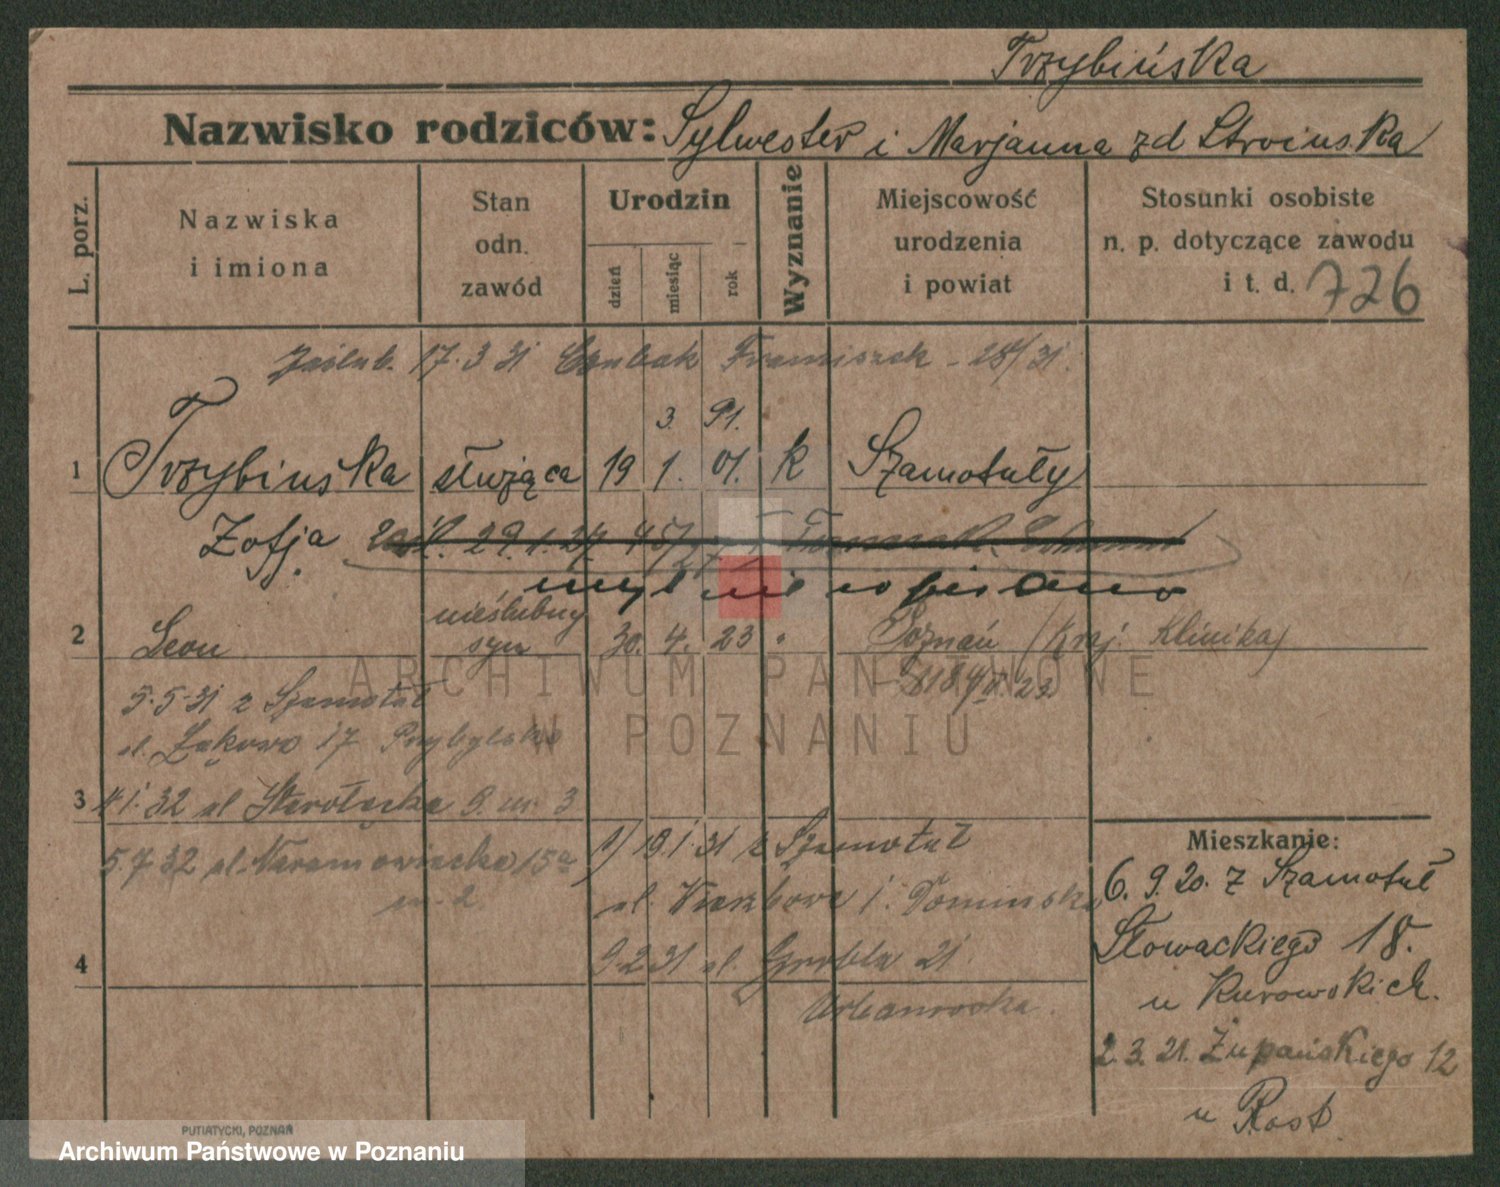 Trzybińska
Nazwisko rodziców: Sylwester i Marjanna zd Stroińska
L. porz.
Nazwiska
i imiona
Stan
odn.
zawód
Urodzin
dzień
miesiąc
rok
Wyznanie
Miejscowość
urodzenia
i powiat
Stosunki osobiste
n. p. dotyczące zawodu
i t. d. 726
Zaślub. 17.3.31 Franciszek - 28/31.
3. 91.
1 Trzybinska służąca 19 1. 01. k Szamotuły
Zofja 29.1.27
mylnie wpisano
nieślubny
2 Leon syn 30. 4. 23 " Poznań (Kraj. Klinika)
5.5.31 z Szamotuł
ul. Łąkowa 17 Przybylska
3 4.1.32 ul Starołęcka 9. m. 3
5.7.32 ul. Naramowicka 15a
m. 2.
1) 19.1.31 z Szamotuł
ul. Wierzbowa 1. Tominska
9.2.31 ul. Grobla 21.
Urbanowska.
4
Mieszkanie:
6.9.20. z Szamotuł
Słowackiego 18.
u Kurowskich.
2.3.21. Żupańskiego 12
u Rost.
PUTIATYCKI, POZNAŃ
ARCHIWUM PAŃSTWOWE
W POZNANIU
Archiwum Państwowe w Poznaniu